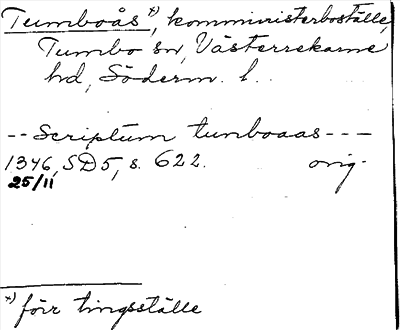 Tumboås x), kommministerboställe,
Tumbo sn, Västerrekarne
hd, Söderm. l.
-- Scriptum tunboaas ---
1346, SD 5, s. 622. orig.
25/11
x) förr tingsställe